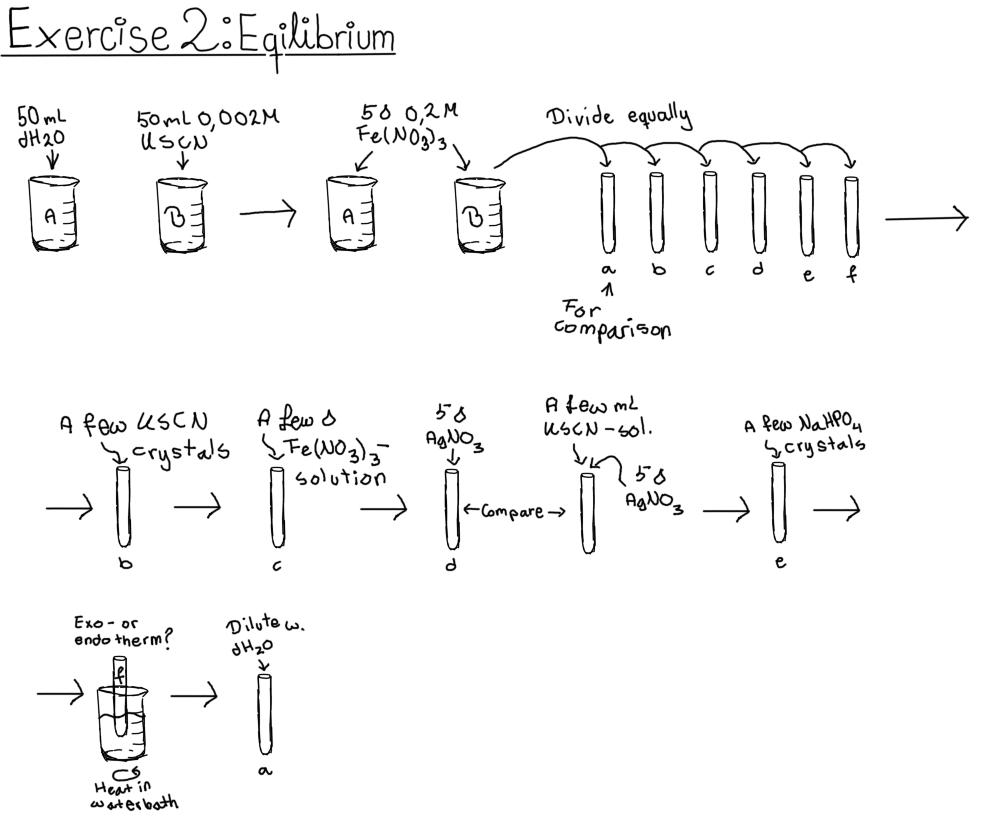 Exercise 2: Eqilibrium
50mL
dH2O
50mL 0,002M
KSCN
5δ 0,2M
Fe(NO3)3
Divide equally
A
B
A
B
a
b
c
d
e
f
For
comparison
A few KSCN
crystals
b
A few δ
Fe(NO3)3-
solution
c
5δ
AgNO3
d
Compare
A few mL
KSCN-sol.
5δ
AgNO3
A few NaHPO4
crystals
e
Exo- or
endotherm?
f
Heat in
waterbath
Dilute w.
dH2O
a